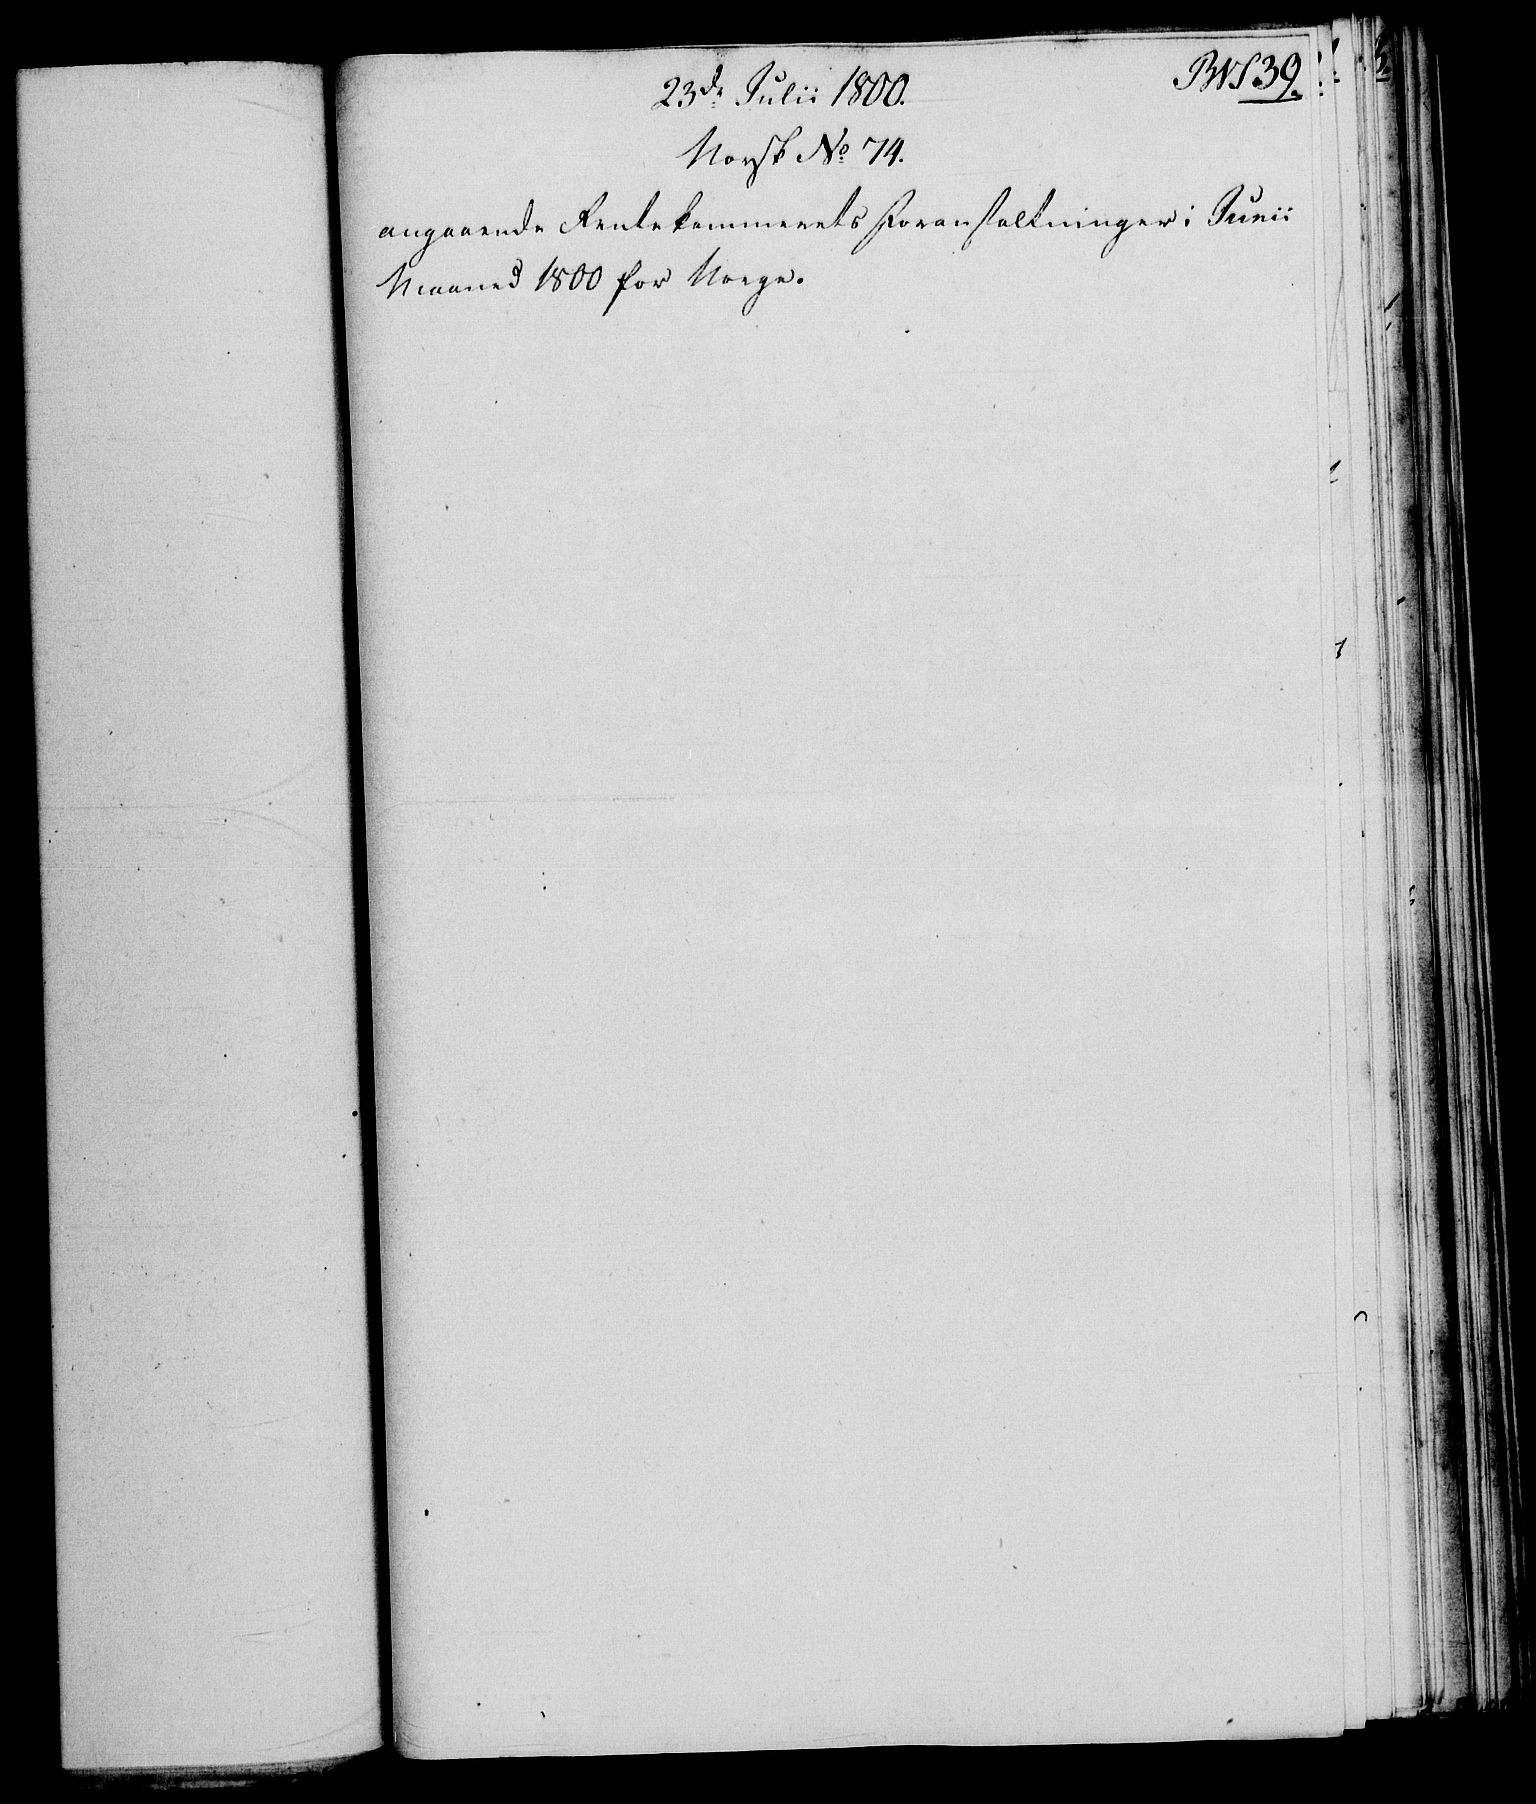 23de Julii 1800.
Norsk No 74.
angaaende Rentekammerets Foranstaltninger i Junii
Maaned 1800 for Norge.